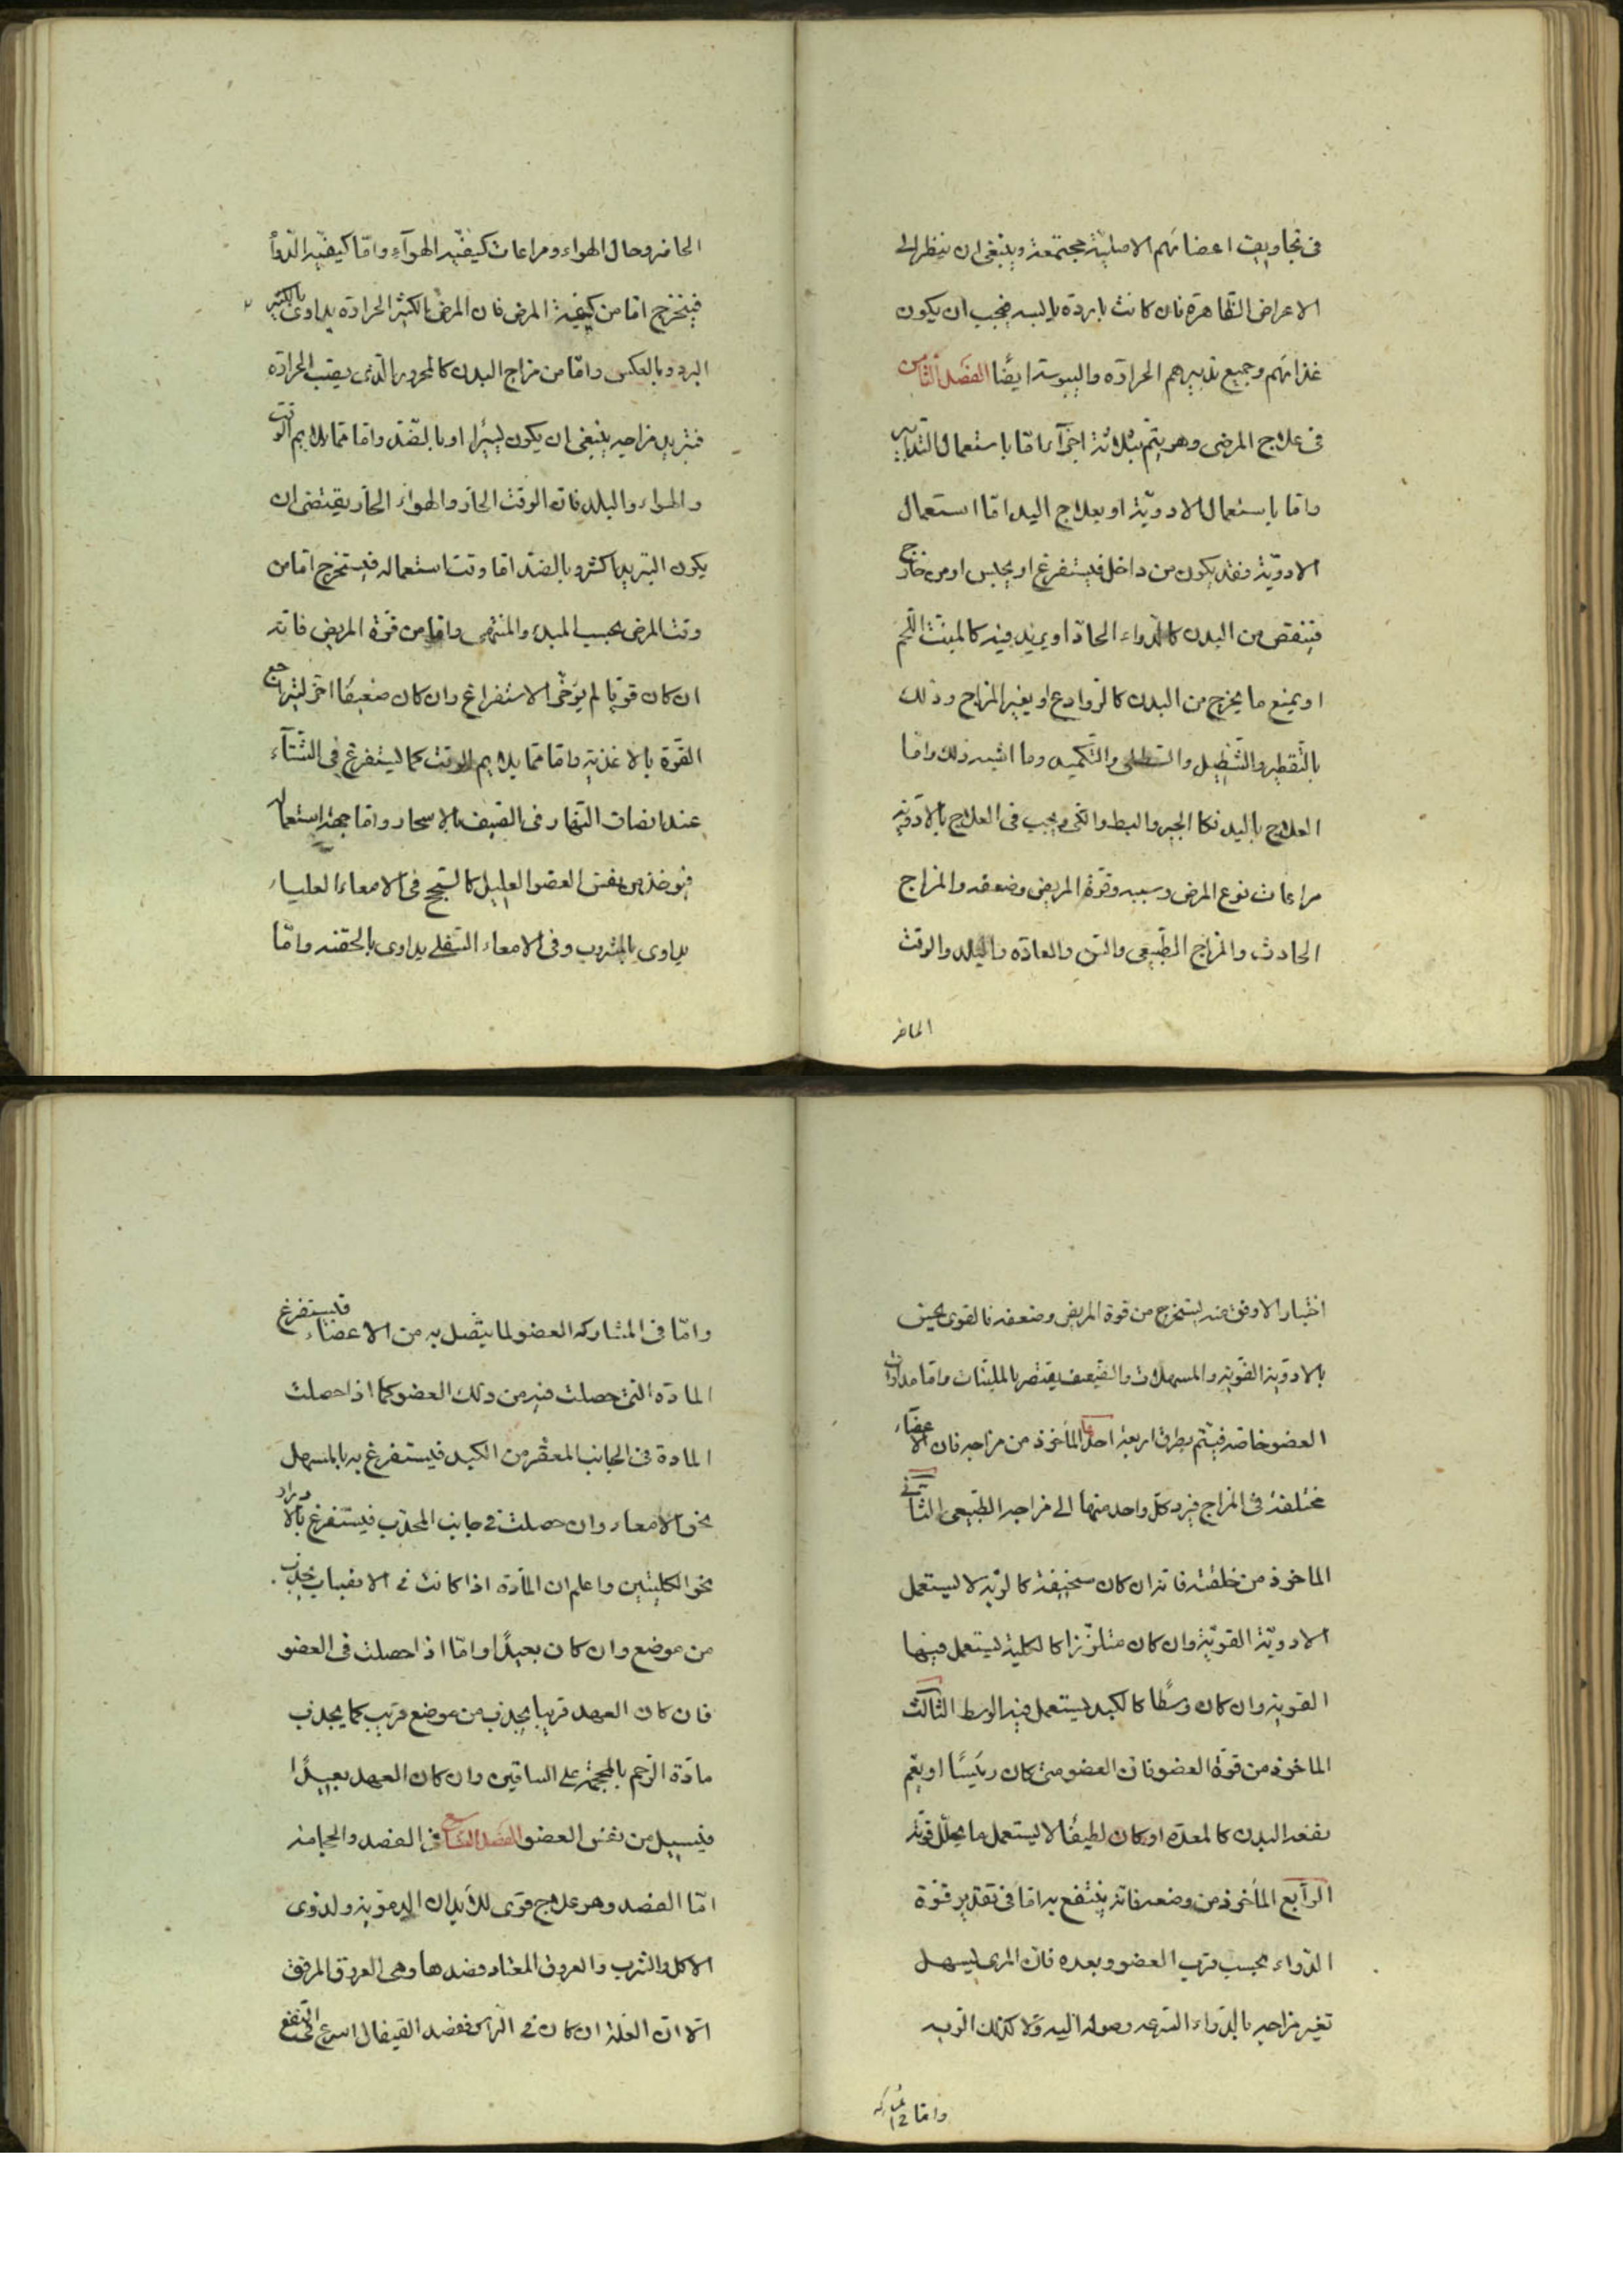 فى تجاويف اعضائهم الاصليّة مجتمعة وينبغى ان ينظر الى
الاعراض الظّاهرة فان كانت باردة يابسه فيجب ان يكون
غذائهم وجميع تدبيرهم الحرارة واليبوسة ايضًا الفصَل الثّامن
فى علاج المرضى وهو يتم بثلاثة اجزآء امّا باستعمال التدابير
وامّا باستعمال الادويّة او بعلاج اليد امّا استعمال
الادويّة فقد يكون من داخل فيستفرغ او يحبس او من خارج
فينقص من البدن كالدّواء الحادّ او يزيد فيه كالمنبت اللّحَم
او يمنع ما يخرج من البدن كالروادع او يغير المزاج وذلك
بالتّقطير والتّنطيل والتّطلى والتّكميد وما اشبه ذلك وامّا
العلاج باليد فكالجبر والبط والكى ويجب فى العلاج بالادويّة
مراعات نوع المرض وسببه وقوّة المريض وضعفه والمزاج
الحادث والمزاج الطّبيعى والسّن والعادّه والبلد والوقت
الحاضر
الحاضر وحال الهواء ومراعات كيفيّه الهوآء وامّا كيفيّه الدّوآ
فيتخرج امّا من كيفية المرض فان المرض الكثير الحرارة يداوى بالكثير
البرد وبالعكس وامّا من مزاج البدن كالمحرور الّذى يصيب الحرارة
فتبريد مزاجه ينبغى ان يكون يسيرا او بالضّد وامّا ممّا يلايم الوقت
والهواء والبلد فان الوقت الحارّ والهواء الحارّ يقتضى ان
يكون التبريد اكثر وبالضد امّا وقت استعماله فيستخرج امّا من
وقت المرض بحسب المبدء والمنتهى وامّا من قوّة المريض فانّه
ان كان قويّا لم يؤخّر الاستفراغ وان كان ضعيفًا اخّر ليتراجع
القوّة بالاغذية وامّا ممّا يلايم الوقت كما يستفرغ فى الشّتآء
عند انصاف النّهار وفى الصّيف بالاسحار وامّا جهة استعماله
فيوخذ من نفس العضو العليل كالسّحج فى الامعاء العلياء
يداوى بالمشروب وفى الامعاء السّفلى يداوى بالحقنه وامّا
اختيار الاوفق منه يستخرج من قوة المريض وضعفه فالقوى يحين
بالادويّة القويّة والمسهلات والضّعيف يقتصر بالمليّنات وامّا مداوات
العضو خاصّه فيتّم بطرق اربعة احدها المأخوذ من مزاجه فان الاعضآء
مختلفة فى المزاج فيردّ كلّ واحد منها الى مزاجه الطّبيعى الثّانى
الماخوذ من خلقته فانّه ان كان سخيفة كالريّه لا يستعمل
الادويّة القويّة وان كان متلزّزا كالكلية يستعمل فيها
القويّة وان كان وسطًا كالكبد يستعمل فيه الوسط الثّالث
الماخوذ من قوّة العضو فان العضو متى كان رئيسًا او يعم
نفعه البدن كالمعدّه او كان لطيفًا لا يستعمل ما يحلّل قوّته
الرّابع المأخوذ من وضعه فانّه ينتفع به امّا فى تقدير قوّة
الدّواء بحسب قرب العضو وبعده فان المرى يسهل
تغير مزاجه بالدّواء السرعه وصوله اليه ولا كذلك الريه
وامّا
وامّا فى المشاركه العضو لما يتّصل به من الاعضاء فليستفرغ
المادّه التى حصلت فيه من ذلك العضو كما اذا حصلت
المادة فى الجانب المعقّر من الكبد فليستفرغ به بالمسهل
نحو الامعاء وان حصلت فى جانب المحدّب فيستفرغ بالادرار
نحو الكليتين واعلم ان المادّة اذا كانت فى الانصباب يجذب
من موضع وان كان بعيدًا وامّا اذا حصلت فى العضو
فان كان العهد قريبا يجذب من موضع قريب كما يجذب
مادّة الرّحم بالمحجمة على الساقين وان كان العهد بعيدًا
فيسيل من نفس العضو الفصَل التّاسع فى الفصد والحجامة
امّا الفصد وهو علاج قوى للأبدان الدمويّة ولذوى
الاكل والشرب والعروق المعتاد فصدها وهى العروق المرفق
الّا انّ العلّة ان كان فى الرّأس ففصد القيفال اسرع فى النّفع